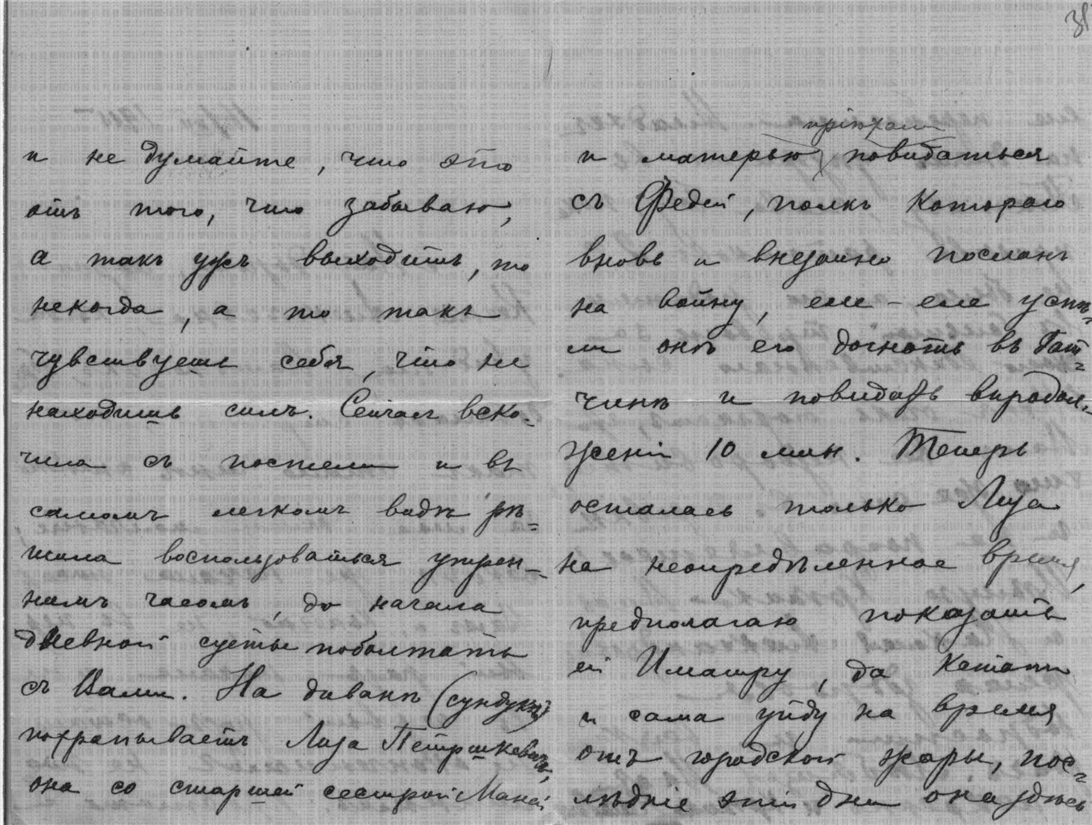 31
и не думайте, что это
отъ того, что забываю,
а такъ ужъ выходитъ, то
некогда, а то такъ
чувствуешь себя, что не
находишь силъ. Сейчасъ вско-
чила съ постели и въ
самомъ легкомъ видѣ рѣ=
шила воспользоваться утрен-
нимъ часомъ, до начала
дневной суеты поболтать
съ Вами. На диванѣ (сундукѣ)
похрапываетъ Лиза Петрашкевичъ,
она со старшей сестрой Маней
пріѣхали
и матерью повидаться
съ Федей, полкъ котораго
вновь и внезапно посланъ
на войну, еле-еле успѣ=
ли онѣ его догнать въ Гат=
чинѣ и повидать впродол-
женіи 10 мин. Теперь
осталась только Лиза
на неопредѣленное время,
предполагаю показать
ей Иматру, да кстати
и сама уйду на время
отъ городской жары, пос=
лѣдніе эти дни она здѣсь